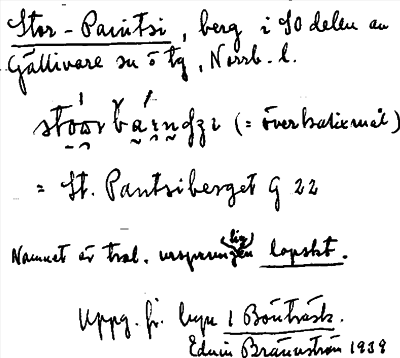 Stor-Paintsi, berg i SO delen av
Gällivare sn o tg, Norrb. l.
(= överkalixmål)
= St. Pantsiberget G 22
Namnet är trol. ursprungligen lapskt.
Uppg. fr. byn i Bönträsk.
Edvin Brännström 1939